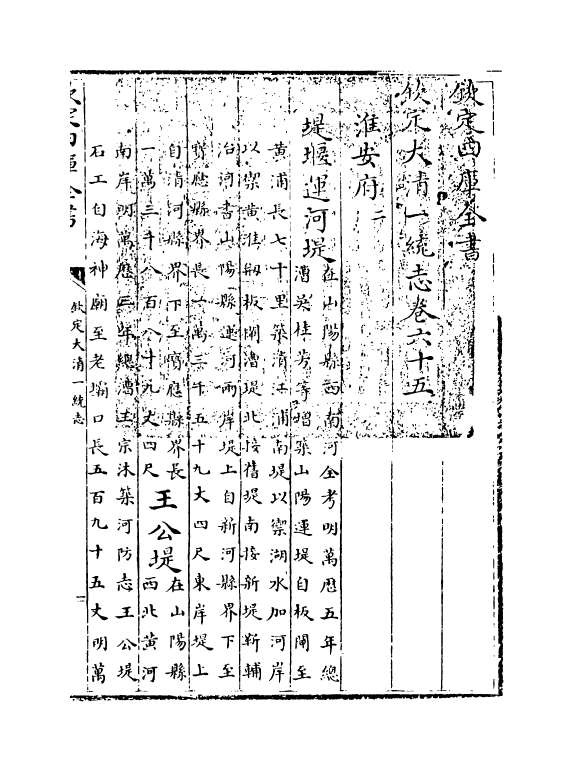 欽定四庫全書
欽定大清一統志卷六十五
淮安府二
堤堰運河堤
在山陽縣西南河全考明萬厯五年總
漕吳桂芳等增築山陽運堤自板閘至
黄浦長七十里築清江浦南堤以禦湖水加河岸
以禦黄淮剏板閘漕堤北接舊堤南接新堤靳輔
治河書山陽縣運河兩岸堤上自新河縣界下至
寶應縣界長一萬三千五十九丈四尺東岸堤上
自清河縣界下至寶應縣界長
一萬三千八百八十九丈四尺
王公堤
在山陽縣
西北黄河
南岸明萬厯三年總漕王宗沐築河防志王公堤
石工自海神廟至老壩口長五百九十五丈明萬
欽定四庫全書
欽定大清一統志
一